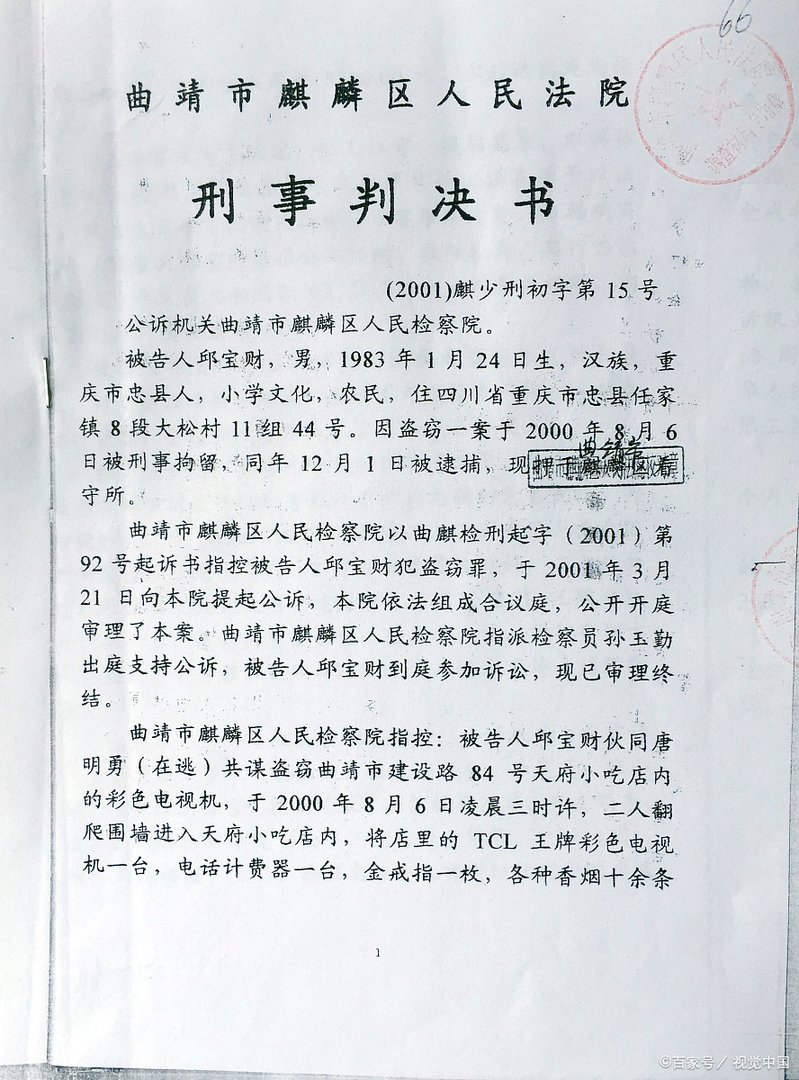 66
曲靖市麒麟区人民法院
刑事判决书
(2001)麒少刑初字第 15 号
公诉机关曲靖市麒麟区人民检察院。
被告人邱宝财，男，1983 年 1 月 24 日生，汉族，重
庆市忠县人，小学文化，农民，住四川省重庆市忠县任家
镇 8 段大松村 11 组 44 号。因盗窃一案于 2000 年 8 月 6
日被刑事拘留，同年 12 月 1 日被逮捕，现押于麒麟区看
守所。
曲靖市麒麟区人民检察院以曲麒检刑起字（2001）第
92 号起诉书指控被告人邱宝财犯盗窃罪，于 2001 年 3 月
21 日向本院提起公诉，本院依法组成合议庭，公开开庭
审理了本案。曲靖市麒麟区人民检察院指派检察员孙玉勤
出庭支持公诉，被告人邱宝财到庭参加诉讼，现已审理终
结。
曲靖市麒麟区人民检察院指控：被告人邱宝财伙同唐
明勇（在逃）共谋盗窃曲靖市建设路 84 号天府小吃店内
的彩色电视机，于 2000 年 8 月 6 日凌晨三时许，二人翻
爬围墙进入天府小吃店内，将店里的 TCL 王牌彩色电视
机一台，电话计费器一台，金戒指一枚，各种香烟十余条
1
©百家号／视觉中国